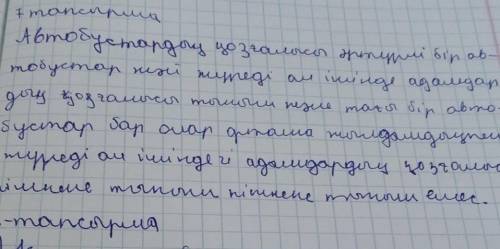 7 тапсырма
Автобустардың қозғалысы әртүрлі бір ав-
тобустар жәй жүреді ал ішінде адамдар
дың қозғалысы тыныш және тағы бір авто
бустар бар олар орташа жылдамдықпен
жүреді ал ішіндегі адамдардың қозғалыс
кішкене тыныш кішкене тыныш емес.
-тапсырма